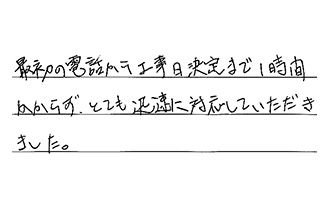 最初の電話から工事日決定まで1時間
かからず、とても迅速に対応していただき
ました。